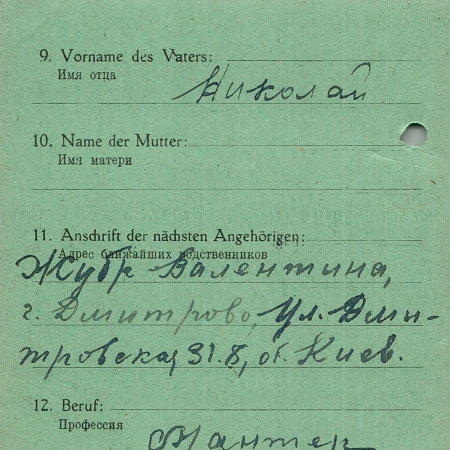 9. Vorname des Vaters:
Имя отца
Николай
10. Name der Mutter:
Имя матери
11. Anschrift der nächsten Angehörigen:
Адрес ближайших родственников
Жубр Валентина,
г. Дмитрово, ул. Дми-
тровская 31.8, об. Киев.
12. Beruf:
Профессия